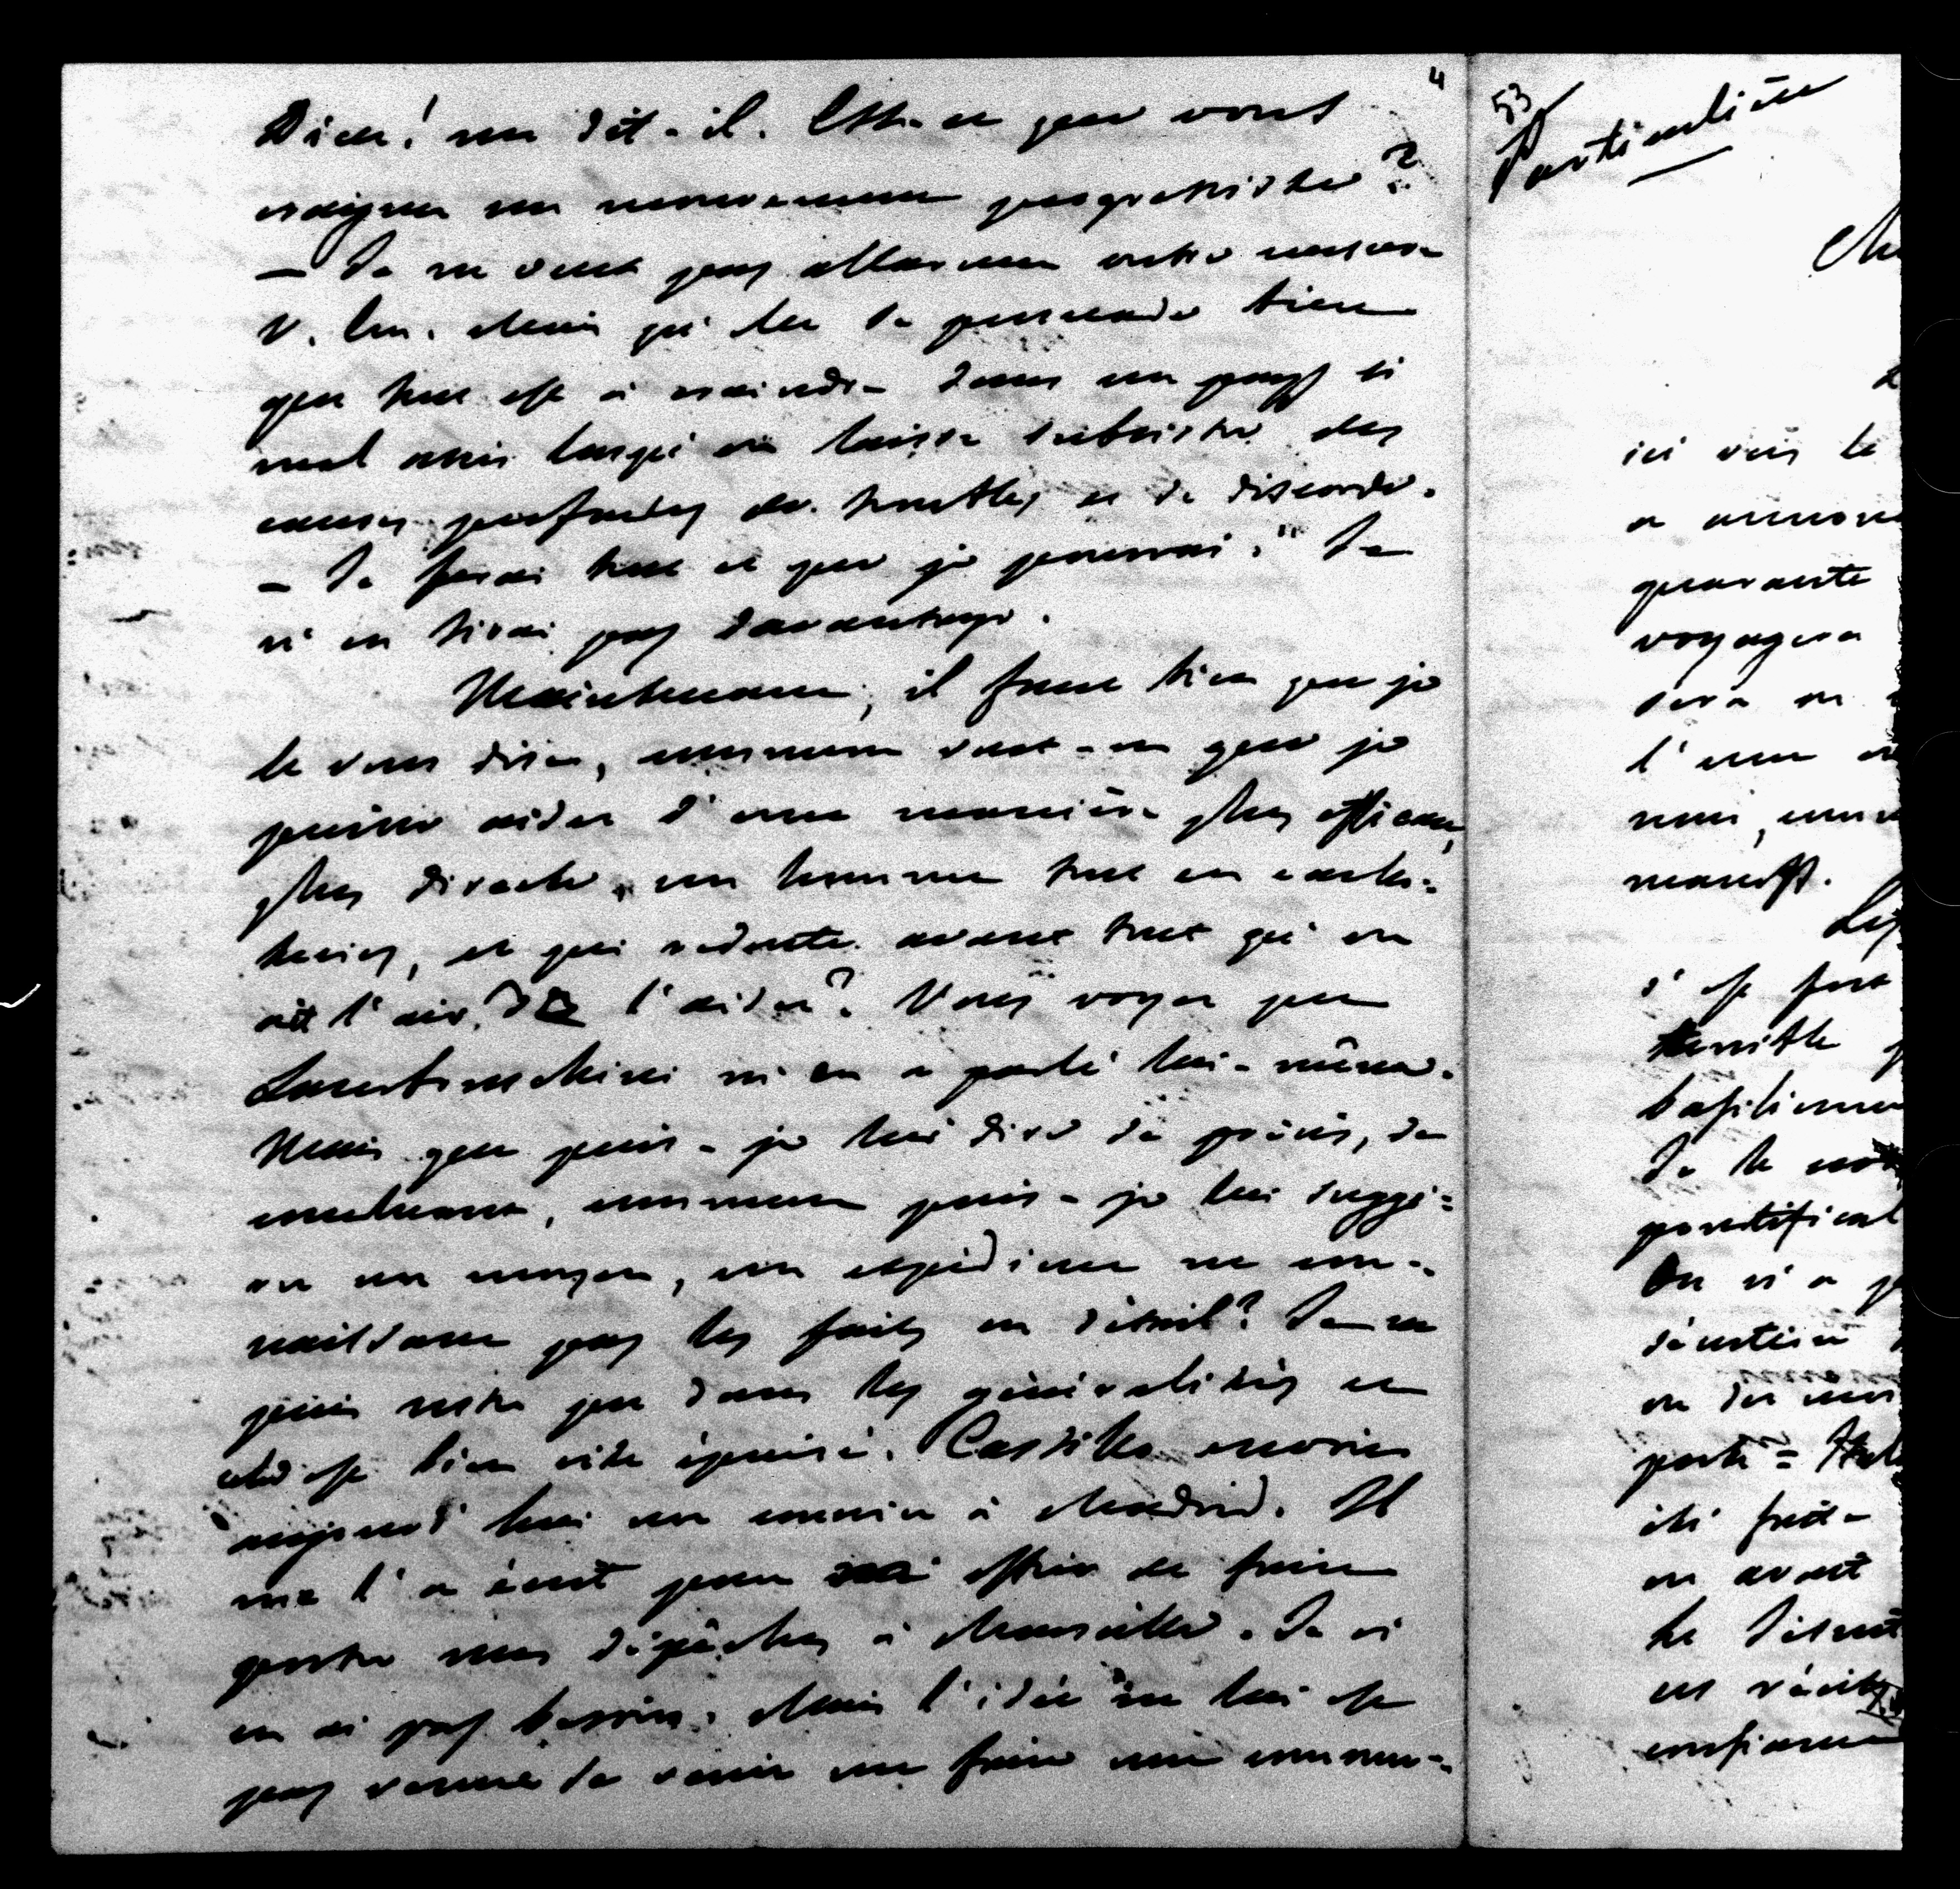 4
Dieu! me dit-il. Est-ce que vous
craignez un mouvement progressiste?
— Je ne veux pas allarmer outre mesure
V. Em. Mais je la persuade bien
que tout est à craindre dans un pays si
mal assis lorsqu'on laisse subsister des
causes profondes de troubles et de discorde.
— Je ferai tout ce que je pourrai." Je
n'en tirai pas davantage.
Maintenant, il faut bien que je
le vous dise, comment veut-on que je
puisse aider d'une manière plus efficace,
plus directe, un homme tout en cachot=
teries, et qui redoute avant tout qu'on
ait l'air de l'aider? Vous voyez que
Lambruschini m'en a parlé lui-même.
Mais que puis-je lui dire de précis, de
concluant, comment puis-je lui suggé=
rer un moyen, un expédient ne con-
naissant pas les faits en détail? Je ne
puis rester que dans les généralités et
cela est bien vite épuisé. Castillo envoie
aujourd'hui un courrier à Madrid. Il
me l'a écrit pour offrir de faire
porter mes dépêches à Marseille. Je n'
en ai pas besoin. Mais l'idée ne lui est
pas venue de venir me faire une commu-
53
Particulière
ici vers le
a annon
quarante
voyagera
sera
l'une
moi, com
manqst.
s'est fort
terrible
basilienne
De la
pontifical
On n'a p
soutenir
ou des
porte=
été
on avait
le
ces récits
confiance